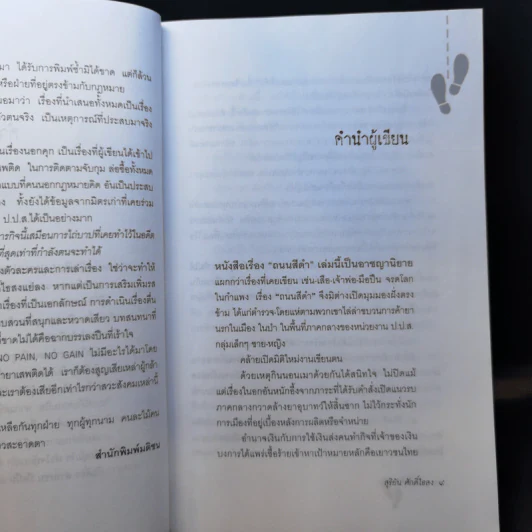 มา ได้รับการพิมพ์ซ้ำมิได้ขาด แต่ก็ล้วน
หรือฝ่ายที่อยู่ตรงข้ามกับกฎหมาย
อมาว่า เรื่องที่นำเสนอทั้งหมดเป็นเรื่อง
ตัวตนจริง เป็นเหตุการณ์ที่ประสบมาจริง
นเรื่องนอกคุก เป็นเรื่องที่ผู้เขียนได้เข้าไป
พติด ในการติดตามจับกุม ล่อซื้อทั้งหมด
แบบที่คนนอกกฎหมายคิด อันเป็นประสบ
ง ทั้งยังได้ข้อมูลจากมิตรเก่าที่เคยร่วม
ป.ป.ส.ได้เป็นอย่างมาก
ารกิจนี้เสมือนการไถ่บาปที่เคยทำไว้ในอดีต
ที่สุดเท่าที่กำลังตนจะทำได้
งตัวละครและการเล่าเรื่อง ใช่ว่าจะทำให้
ไธสงแย่ลง หากแต่เป็นการเสริมเพิ่มรส
เรื่องที่เป็นเอกลักษณ์ การดำเนินเรื่องตื่น
บสวนที่สนุกและหวาดเสียว บทสนทนาที่
ขาดไม่ได้คือฉากบรรเลงปืนที่เร้าใจ
NO PAIN, NO GAIN ไม่มีอะไรได้มาโดย
ายาเสพติดได้ เราก็ต้องสูญเสียเหล่าผู้กล้า
ละเราต้องเสียอีกเท่าไรกว่าสวะสังคมเหล่านี้
เหลือกันทุกฝ่าย ทุกผู้ทุกนาม คนละไม้คน
วสะอาดตา
สำนักพิมพ์มติชน
คำนำผู้เขียน
หนังสือเรื่อง "ถนนสีดำ" เล่มนี้เป็นอาชญานิยาย
แผกกว่าเรื่องที่เคยเขียน เช่น เสือ-เจ้าพ่อ-มือปืน จรดโลก
ในกำแพง เรื่อง "ถนนสีดำ" จึงมีต่างเปิดมุมมองฝั่งตรง
ข้าม ได้แก่ตำรวจ โดยแห่ตามพวกเขาไล่ล่าขบวนการค้ายา
นรกในเมือง ในป่า ในพื้นที่ภาคกลางของหน่วยงาน ป.ป.ส.
กลุ่มเล็กๆ ชาย-หญิง
คล้ายเปิดมิติใหม่งานเขียนตน
ด้วยเหตุกินนอนเมาด้วยกันได้สนิทใจ ไม่ปิดแม้
แต่เรื่องในอกอันหนักอึ้งจากภาระที่ได้รับคำสั่งเปิดแนวรบ
ภาคกลางกวาดล้างยาอุบาทว์ให้สิ้นซาก ไม่ไว้กระทั่งนัก
การเมืองที่อยู่เบื้องหลังการผลิตหรือจำหน่าย
อำนาจเงินกับการใช้เงินส่งคนทำกิจที่เจ้าของเงิน
บงการได้แพร่เชื้อร้ายเข้าหาเป้าหมายหลักคือเยาวชนไทย
สุริยัน ศักดิ์ไธสง